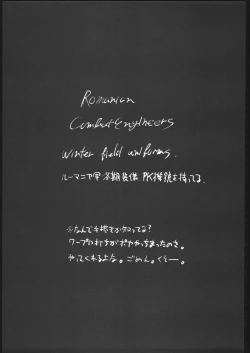 Romanian
Combat Engineers
winter field uniforms.
ルーマニア軍冬期装備 PK機銃を持ってる。
※なんで手描きか知ってる?
ワープロ打ちがボヤけちまったのさ。
やってくれるよな。ごめん。くそー。